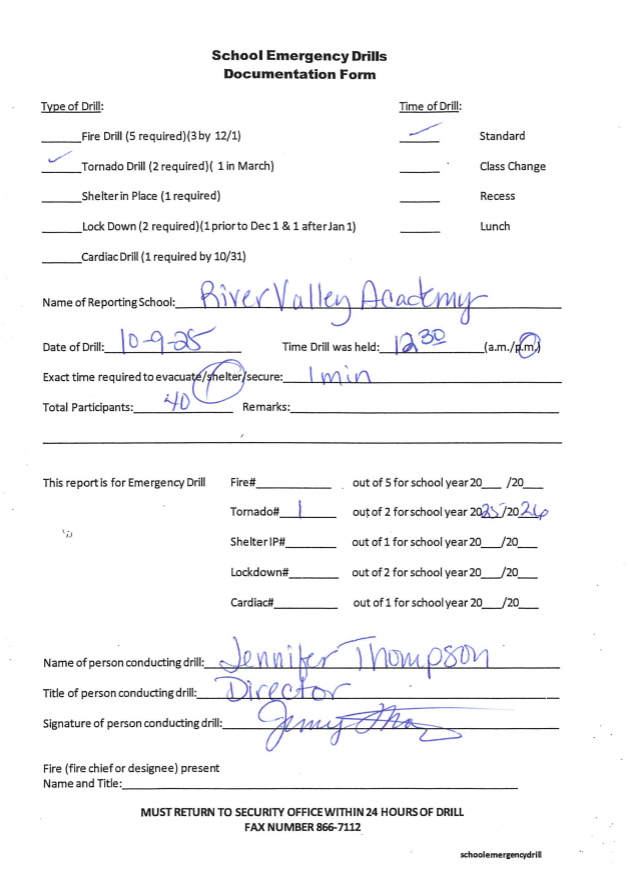 School Emergency Drills
Documentation Form
Type of Drill: Time of Drill:
______Fire Drill (5 required)(3 by 12/1) ✓ Standard
✓ Tornado Drill (2 required)( 1 in March) ______ Class Change
______Shelter in Place (1 required) ______ Recess
______Lock Down (2 required)(1 prior to Dec 1 & 1 after Jan 1) ______ Lunch
______Cardiac Drill (1 required by 10/31)
Name of Reporting School: River Valley Academy
Date of Drill: 10-9-25 Time Drill was held: 12 30 (a.m./p.m.)
Exact time required to evacuate/shelter/secure: 1 min
Total Participants: 40 Remarks:
This report is for Emergency Drill Fire#______ out of 5 for school year 20___ /20___
Tornado# 1 out of 2 for school year 2025/2026
Shelter IP#______ out of 1 for school year 20___/20___
Lockdown#______ out of 2 for school year 20___/20___
Cardiac#______ out of 1 for school year 20___/20___
Name of person conducting drill: Jennifer Thompson
Title of person conducting drill: Director
Signature of person conducting drill:
Fire (fire chief or designee) present
Name and Title:
MUST RETURN TO SECURITY OFFICE WITHIN 24 HOURS OF DRILL
FAX NUMBER 866-7112
schoolemergencydrill